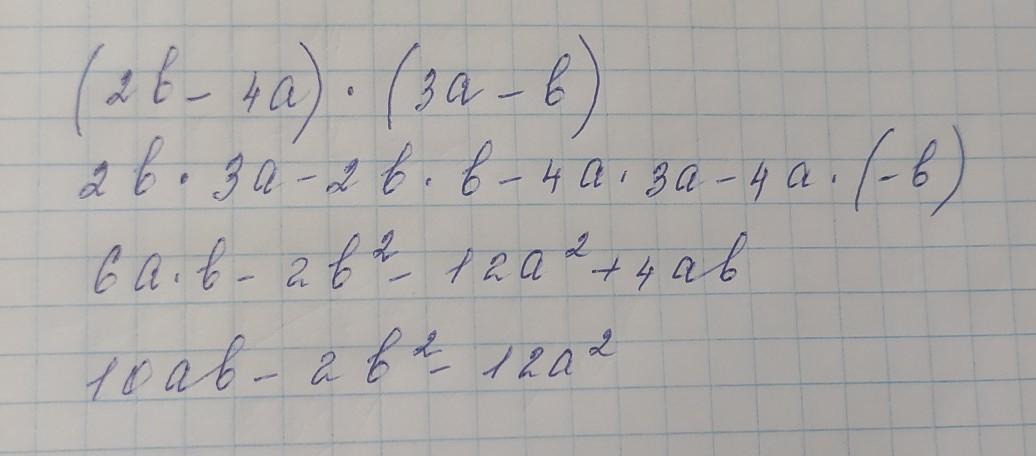 (2b - 4a) · (3a - b)
2b · 3a - 2b · b - 4a · 3a - 4a · (-b)
6a · b - 2b² - 12a² + 4ab
10ab - 2b² - 12a²